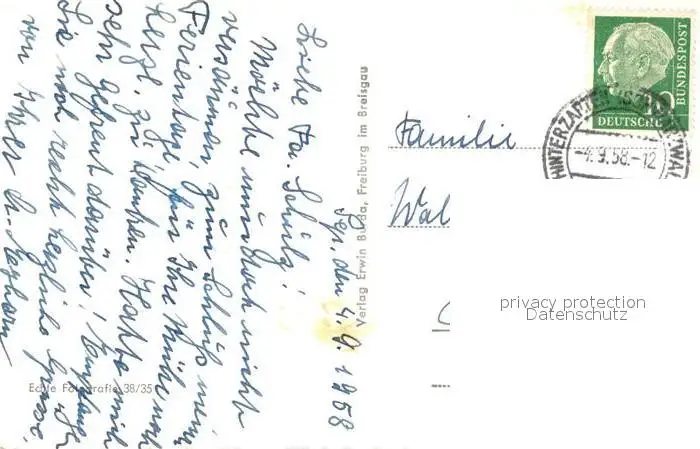 den 4.9.1958
Liebe Fa. Schulz!
Möchte mich doch nicht
versäumen zum Schluß meiner
Ferientage, für Ihre Mühe noch
herzl. zu danken. Hatte mich
sehr gefreut darüber!
Sie noch recht herzliche Grüße,
von Ihrer
Verlag Erwin Burda, Freiburg im Breisgau
Echte Fotografie 38/35
Familie
Wal
DEUTSCHE BUNDESPOST
10
HINTERZARTEN
-4.9.58.-12
privacy protection
Datenschutz